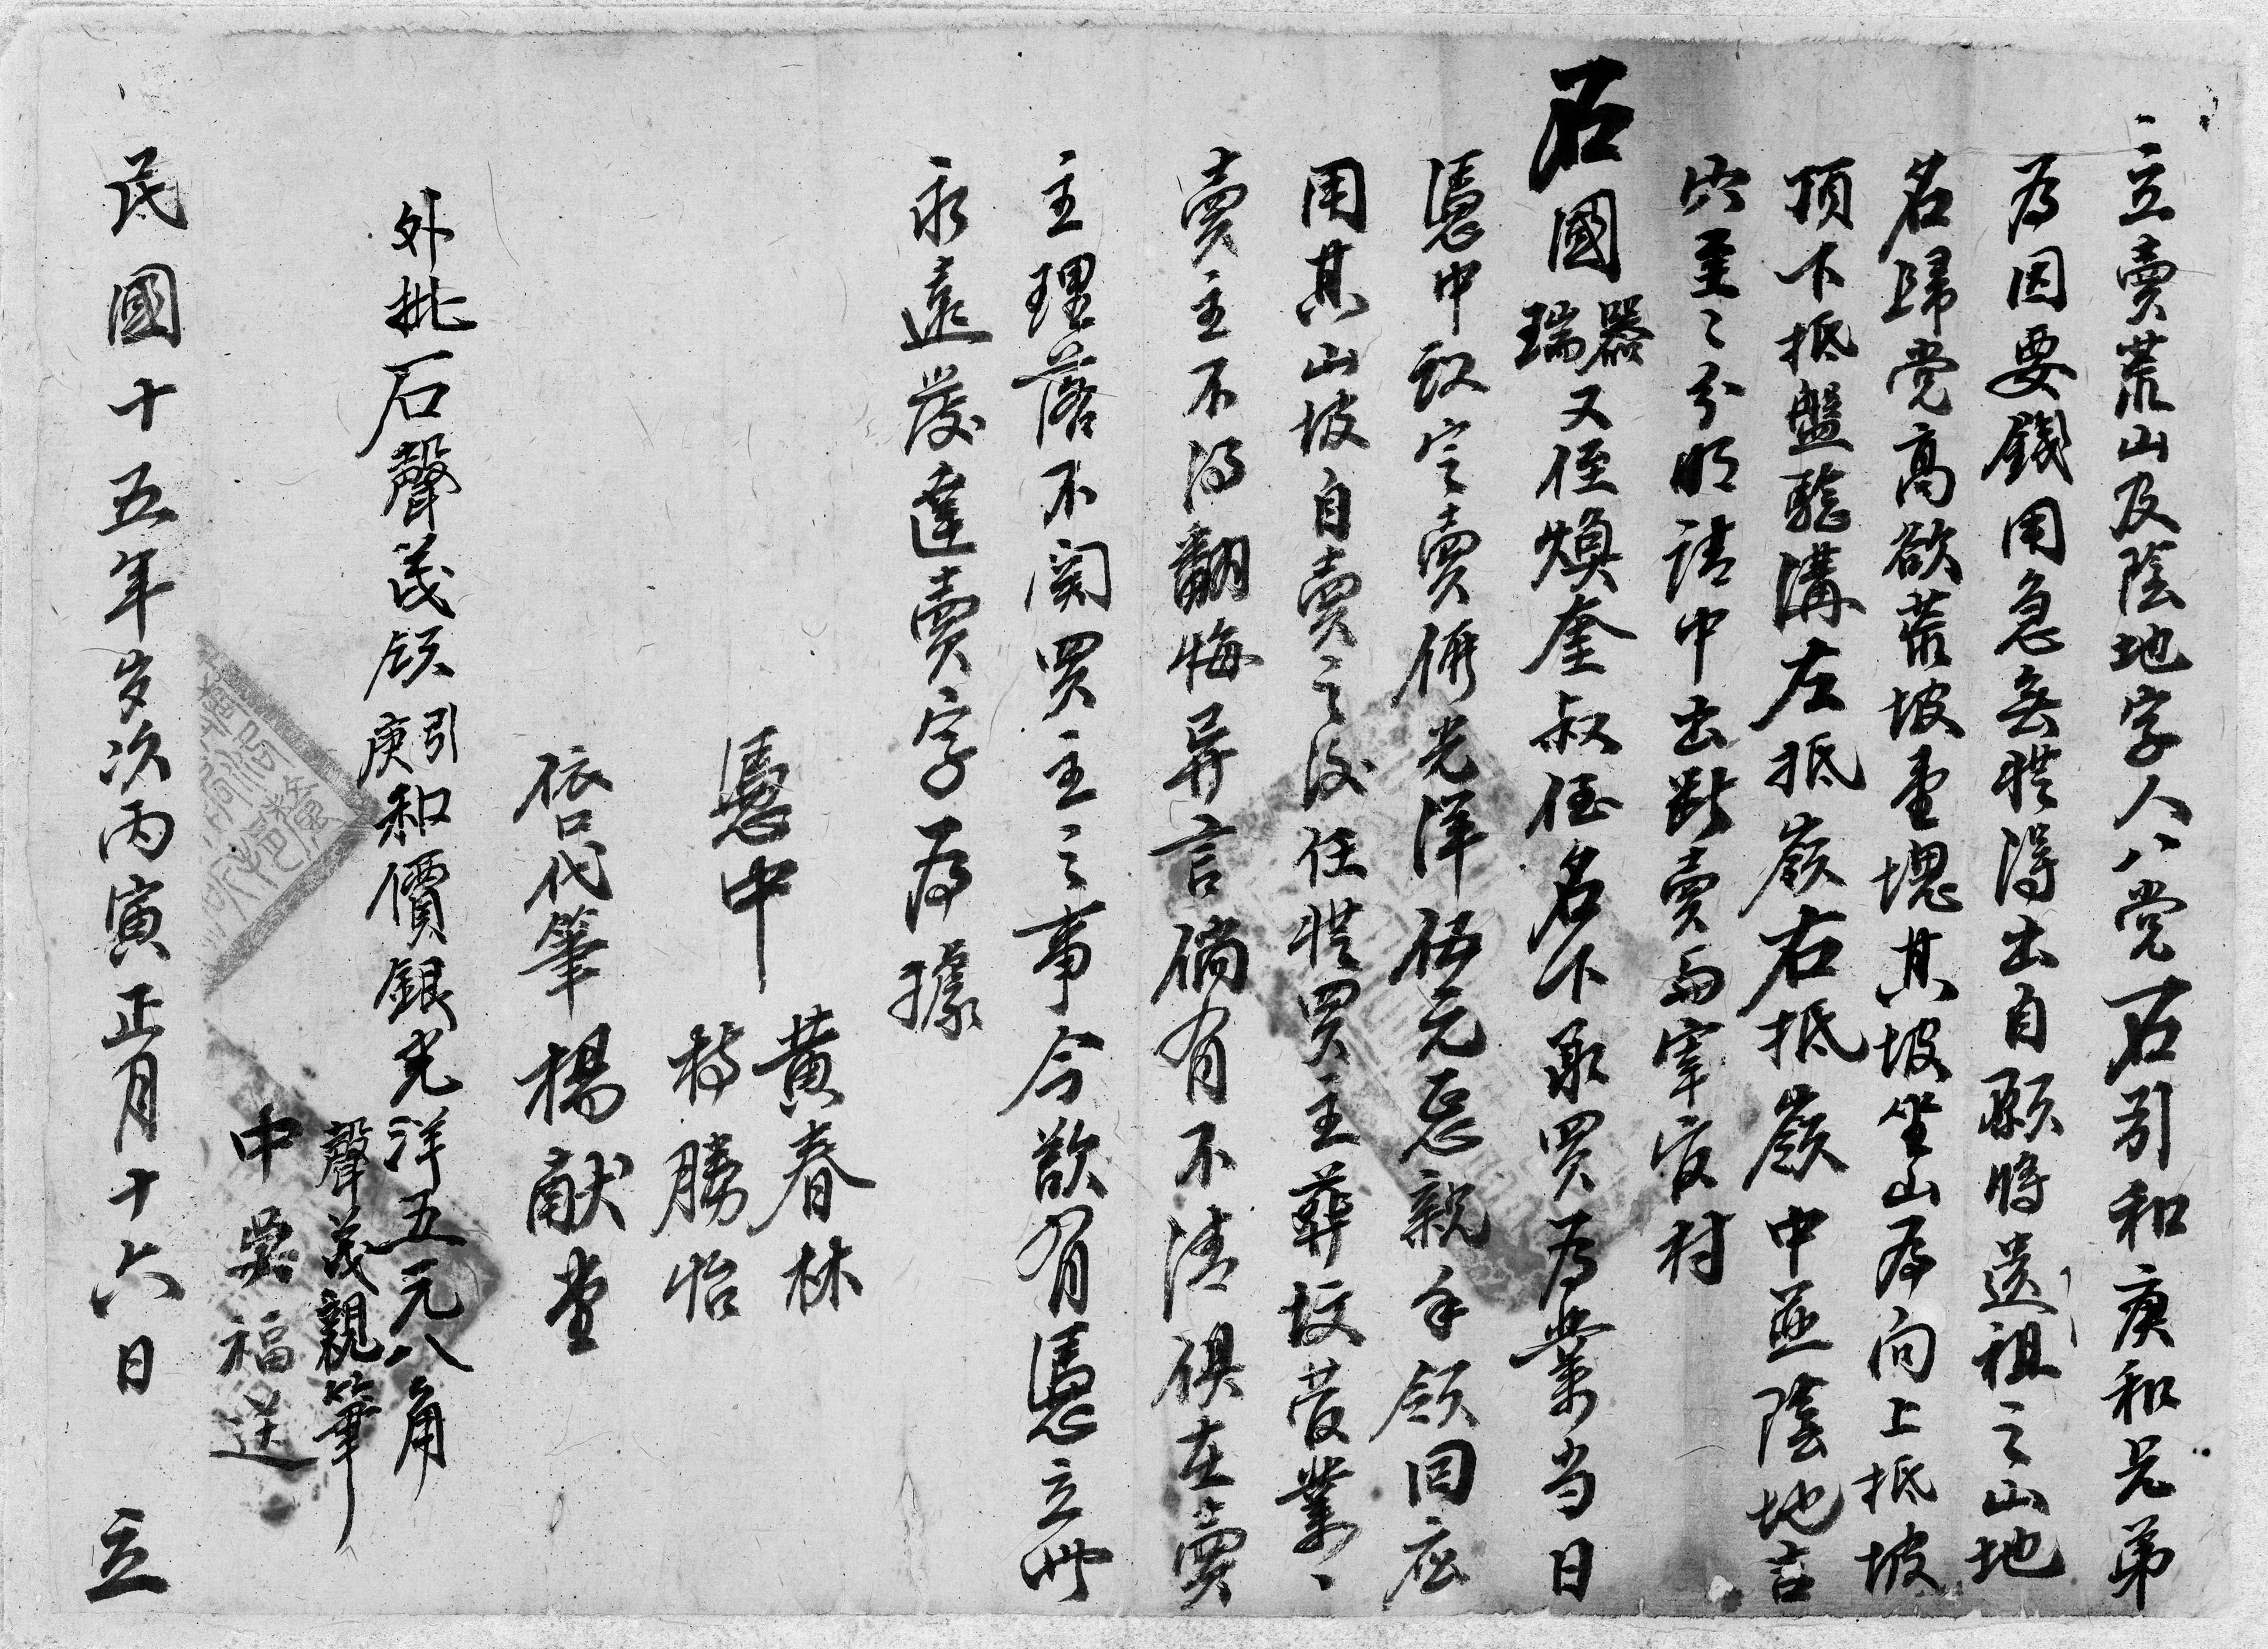 立賣荒山及陰地字人八党石引和庚和兄弟
為因要錢用急無從得出自願將遗祖之山地
名歸党高欲荒坡壹塊其坡坐山为向上抵坡
頂下抵盤駝溝左抵嶺右抵嶺中並陰地吉
穴壹々分明請中出断賣与宰官村
石國器瑞又侄煥奎叔侄名下承買为業当日
憑中致定賣价光洋伍元整親手領回应
用其山坡自賣之後任從買主葬坟管業
賣主不得翻悔异言倘有不清俱在賣
主理落不関買主之事今欲有憑立此
永遠發達賣字為據
憑中 黄春林
楊勝怡
依口代筆楊献堂
外批石聲茂領引庚和價銀光洋五元八角
聲茂親筆
中吳福送
民國十五年岁次丙寅正月十六日 立